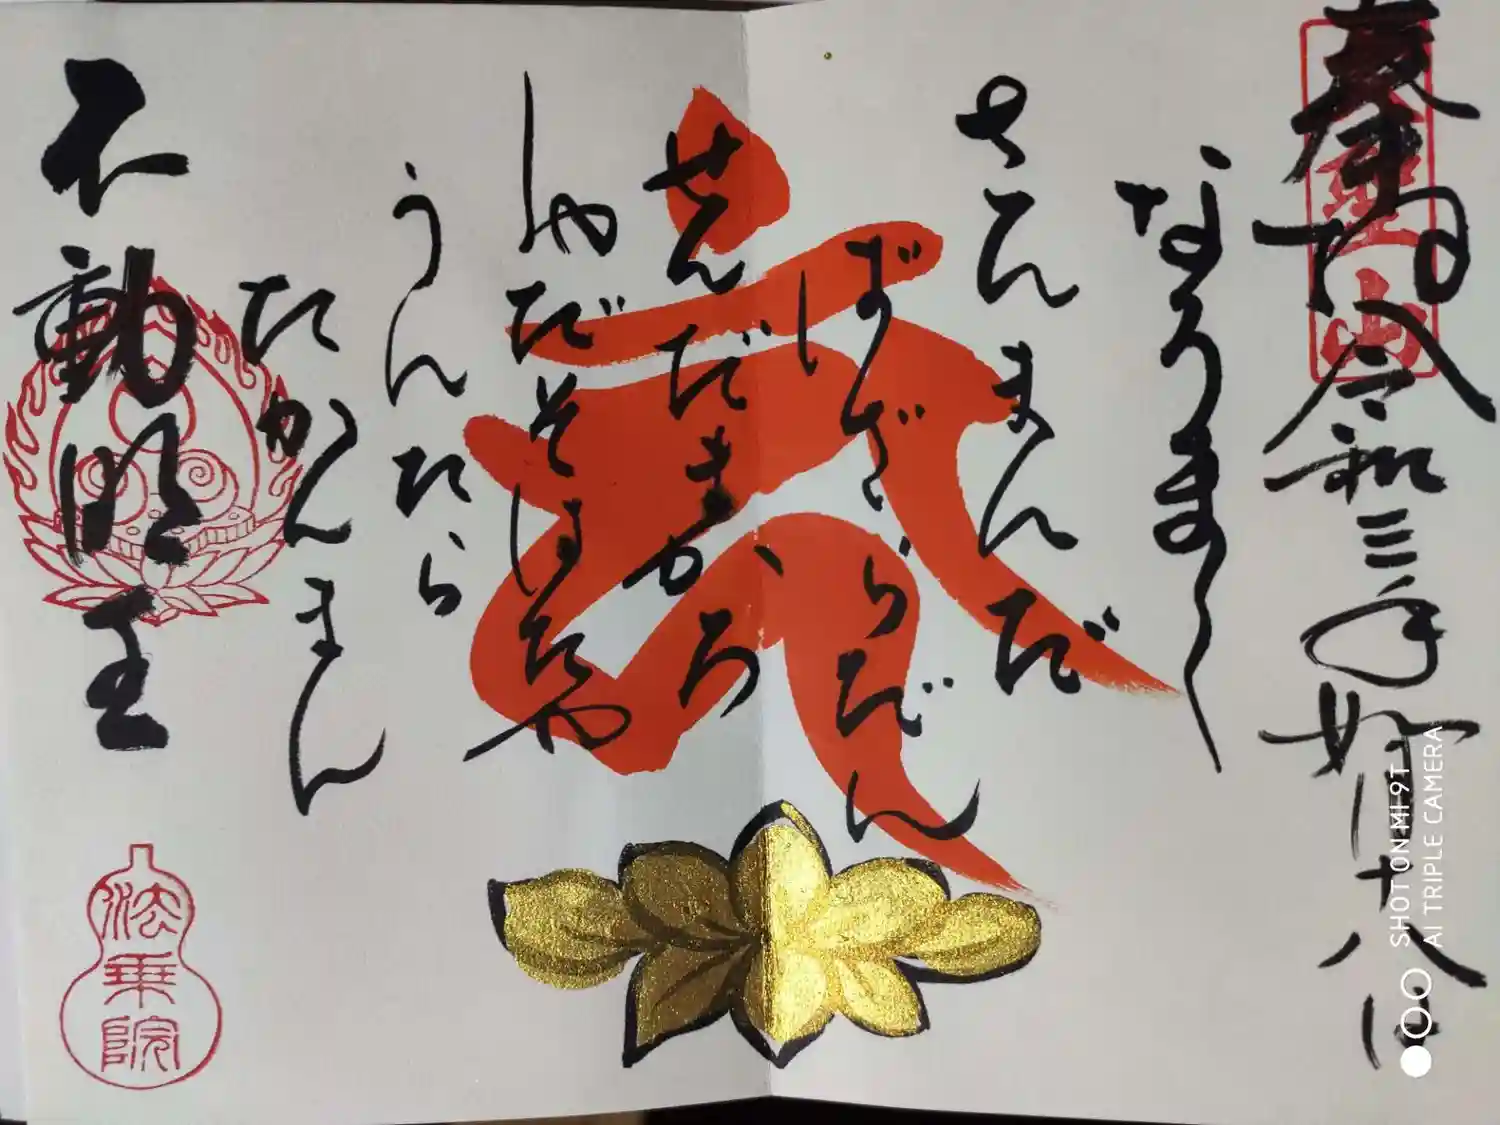 奉拝 令和三年如月十八日
なうまく
さんまんだ
ばざらだん
せんだまかろ
しやだそはたや
うんたら
たかんまん
不動明王
法乗院
SHOT ON MI 9T
AI TRIPLE CAMERA